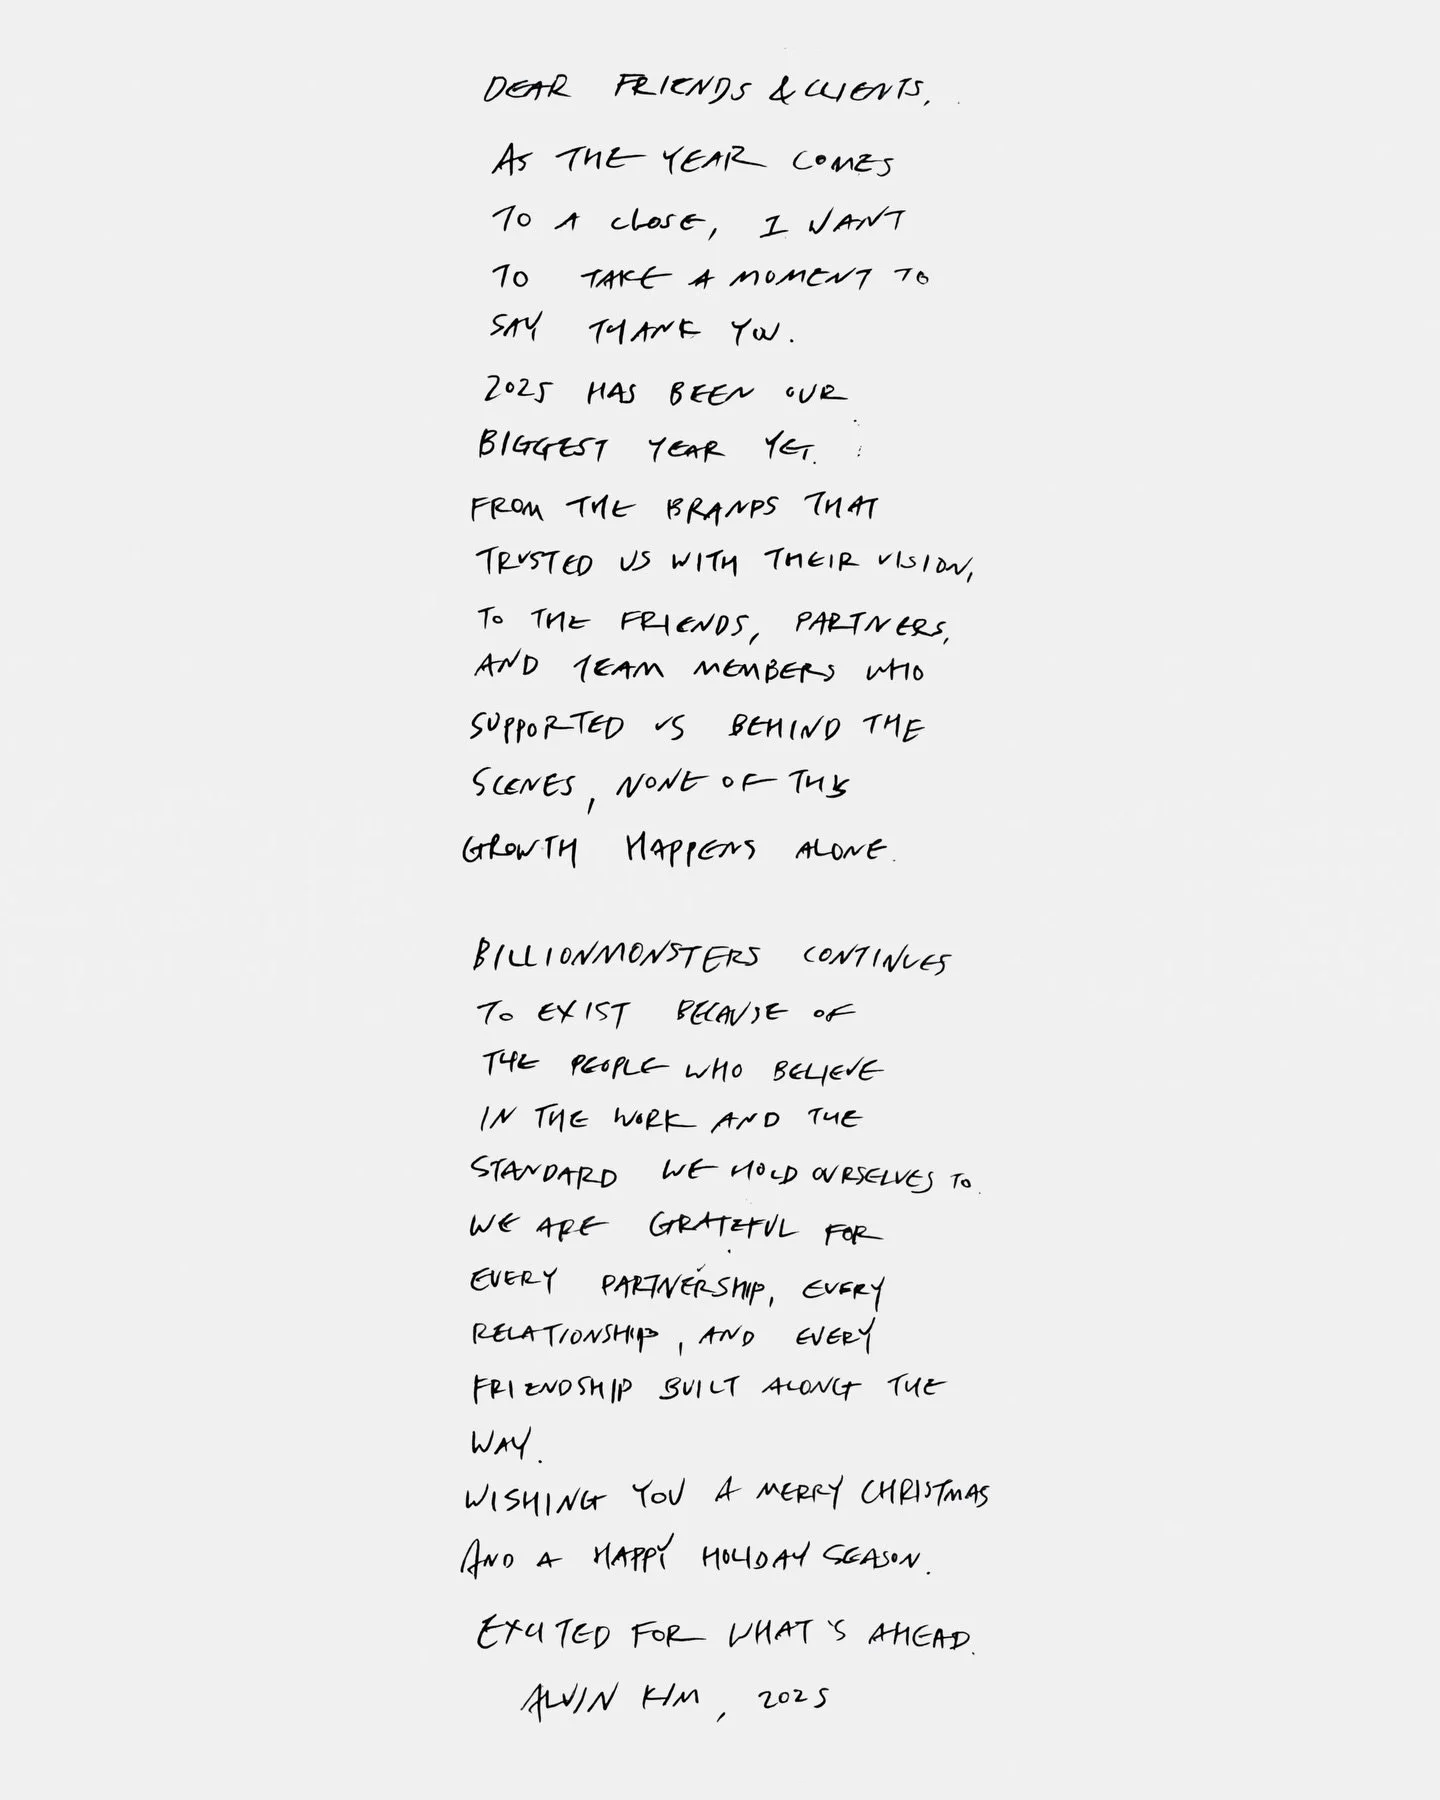 DEAR FRIENDS & CLIENTS,
AS THE YEAR COMES
TO A CLOSE, I WANT
TO TAKE A MOMENT TO
SAY THANK YOU.
2025 HAS BEEN OUR
BIGGEST YEAR YET.
FROM THE BRANDS THAT
TRUSTED US WITH THEIR VISION,
TO THE FRIENDS, PARTNERS,
AND TEAM MEMBERS WHO
SUPPORTED US BEHIND THE
SCENES, NONE OF THIS
GROWTH HAPPENS ALONE.
BILLIONMONSTERS CONTINUES
TO EXIST BECAUSE OF
THE PEOPLE WHO BELIEVE
IN THE WORK AND THE
STANDARD WE HOLD OURSELVES TO.
WE ARE GRATEFUL FOR
EVERY PARTNERSHIP, EVERY
RELATIONSHIP, AND EVERY
FRIENDSHIP BUILT ALONG THE
WAY.
WISHING YOU A MERRY CHRISTMAS
AND A HAPPY HOLIDAY SEASON.
EXCITED FOR WHAT'S AHEAD.
ALVIN KIM, 2025